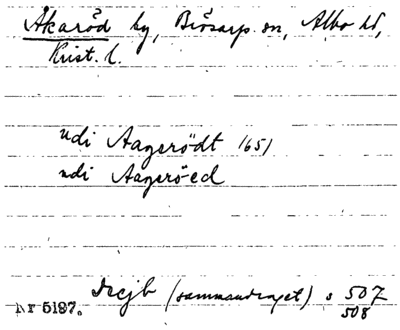 Åkaröd by, Brösarps sn, Albo hd,
Krist. l.
udi Aagerödt 1651
udi Aageröed
Decjb (sammandraget) s 507
508
Nr 5197.